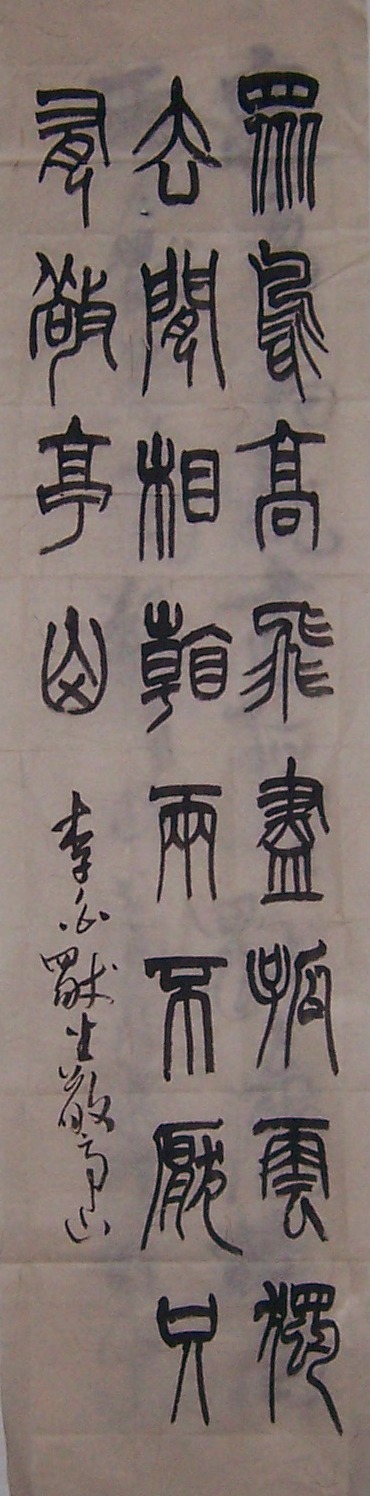 眾鳥高飛盡孤雲獨
去閒相看兩不厭只
有敬亭山
李白獨坐敬亭山